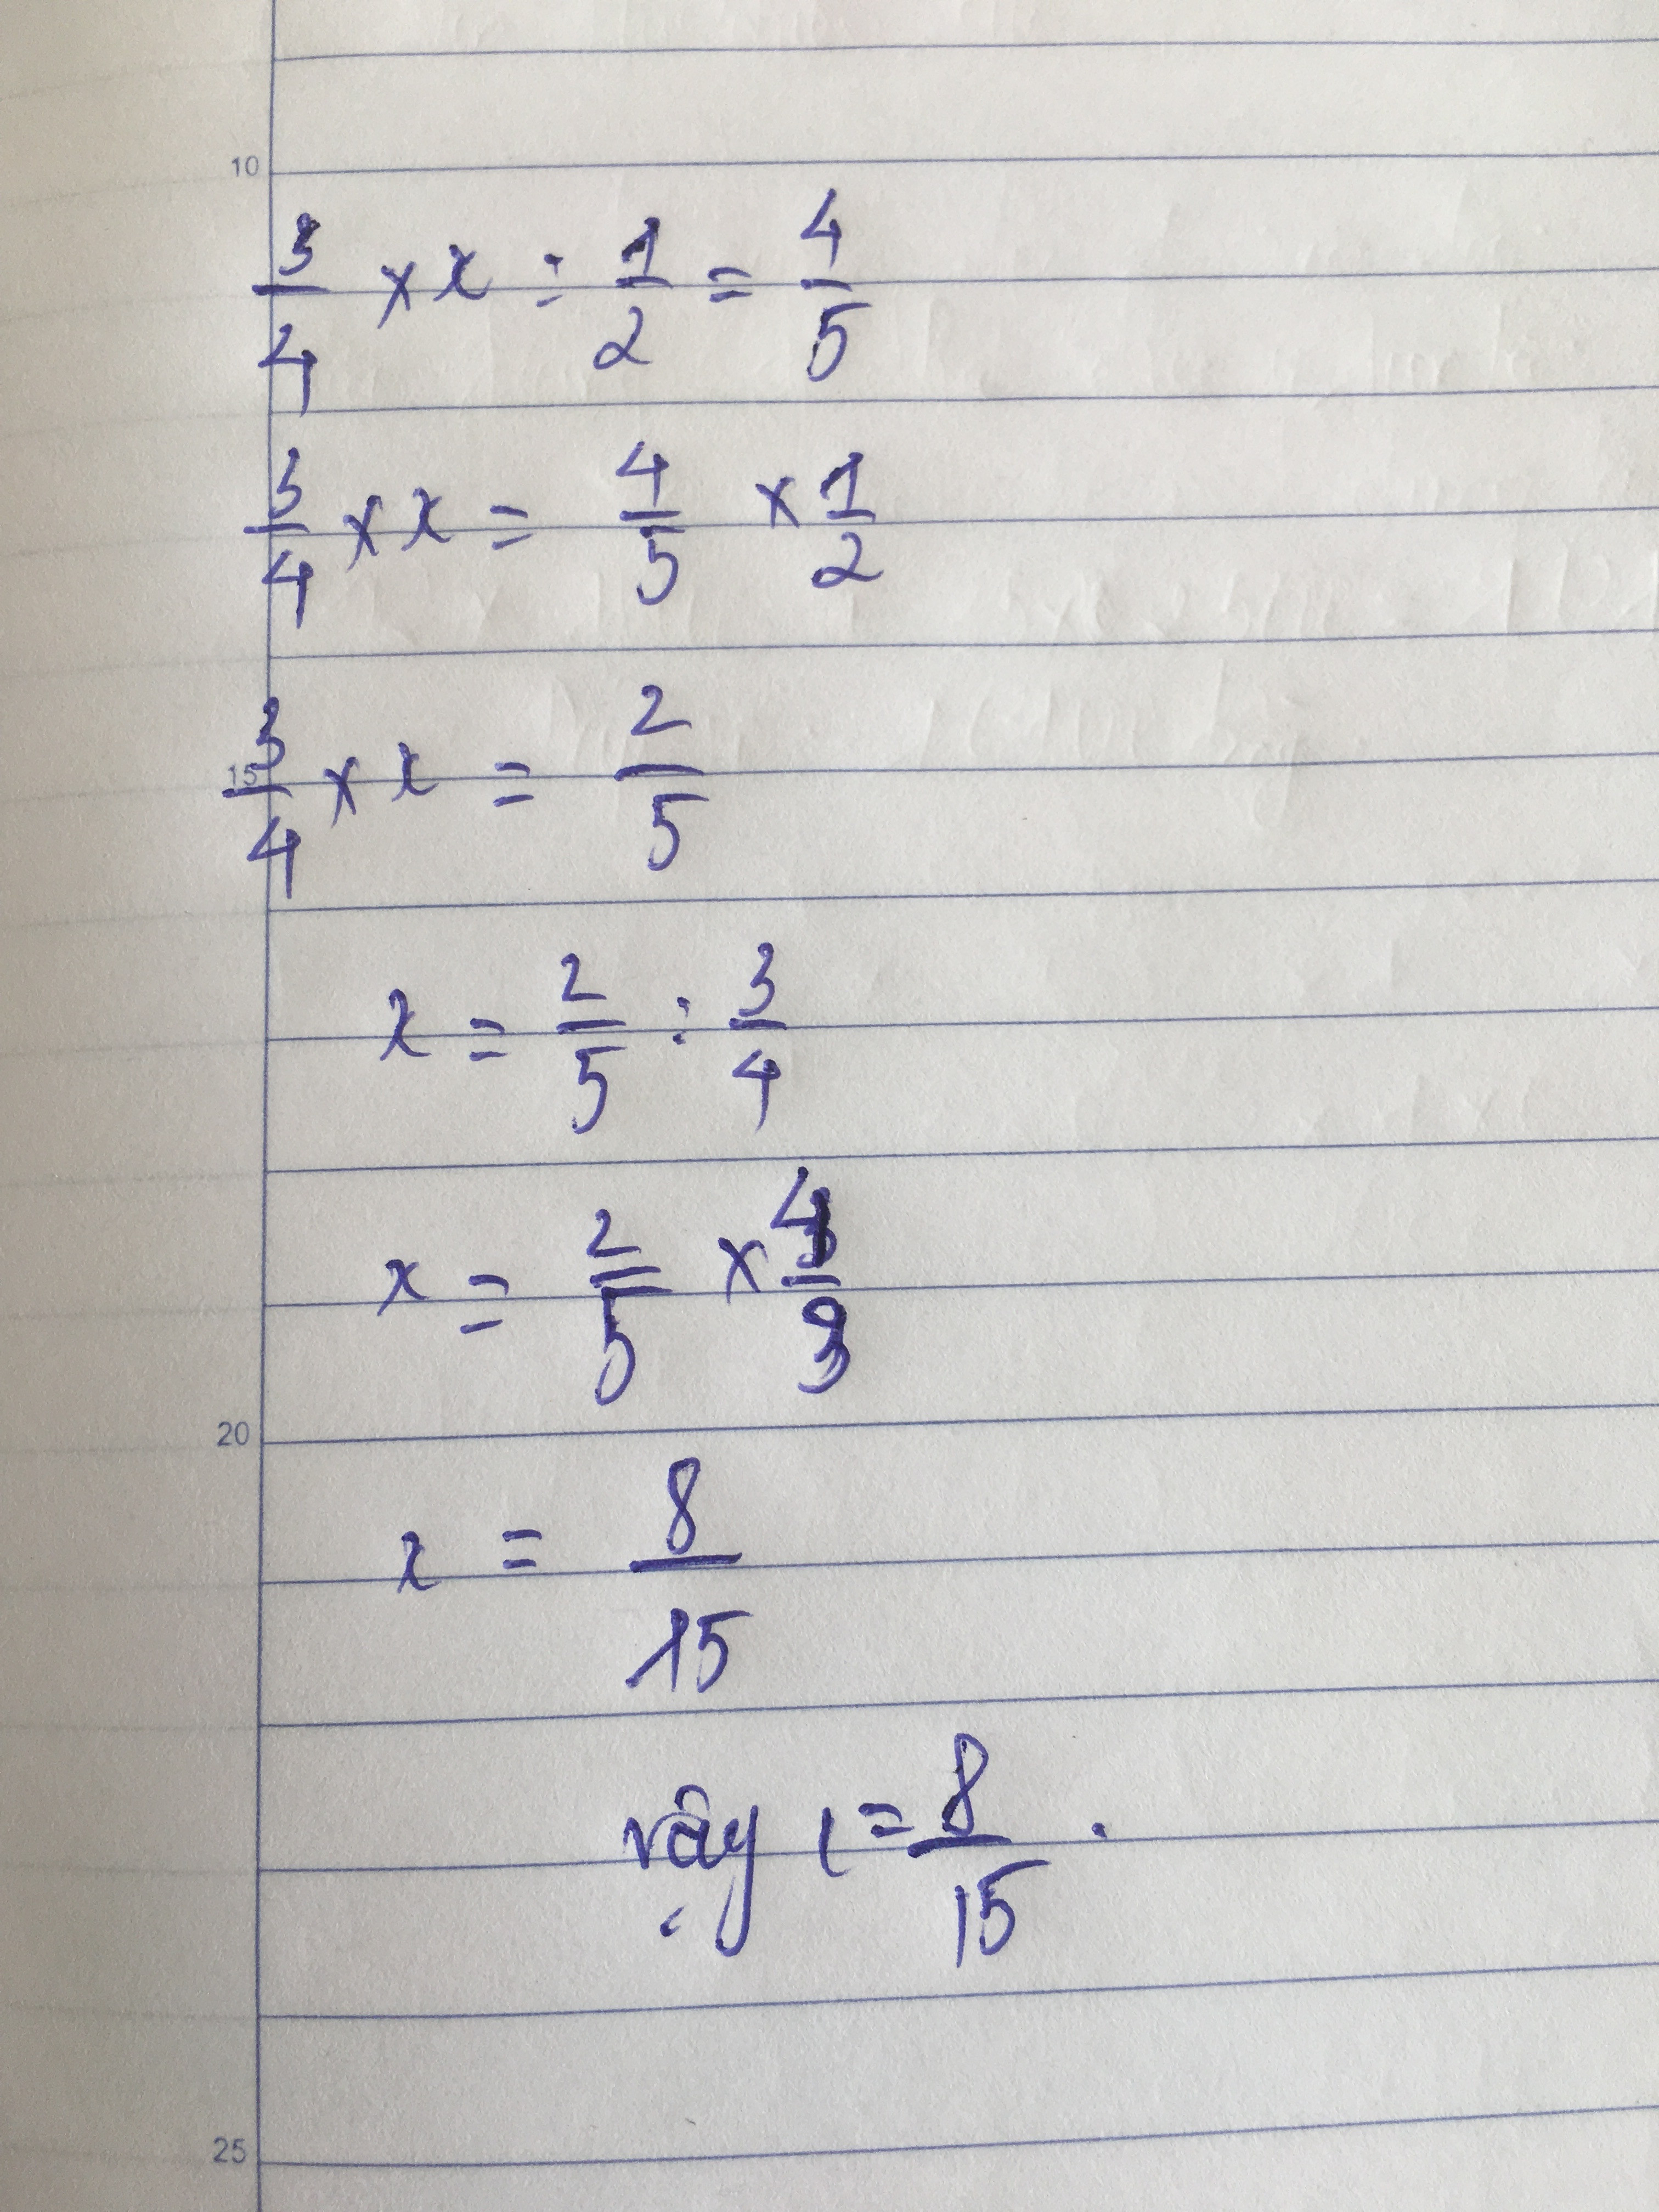 10
3/4 × x : 1/2 = 4/5
3/4 × x = 4/5 × 1/2
15
3/4 × x = 2/5
x = 2/5 : 3/4
x = 2/5 × 4/3
20
x = 8/15
vậy x = 8/15 .
25